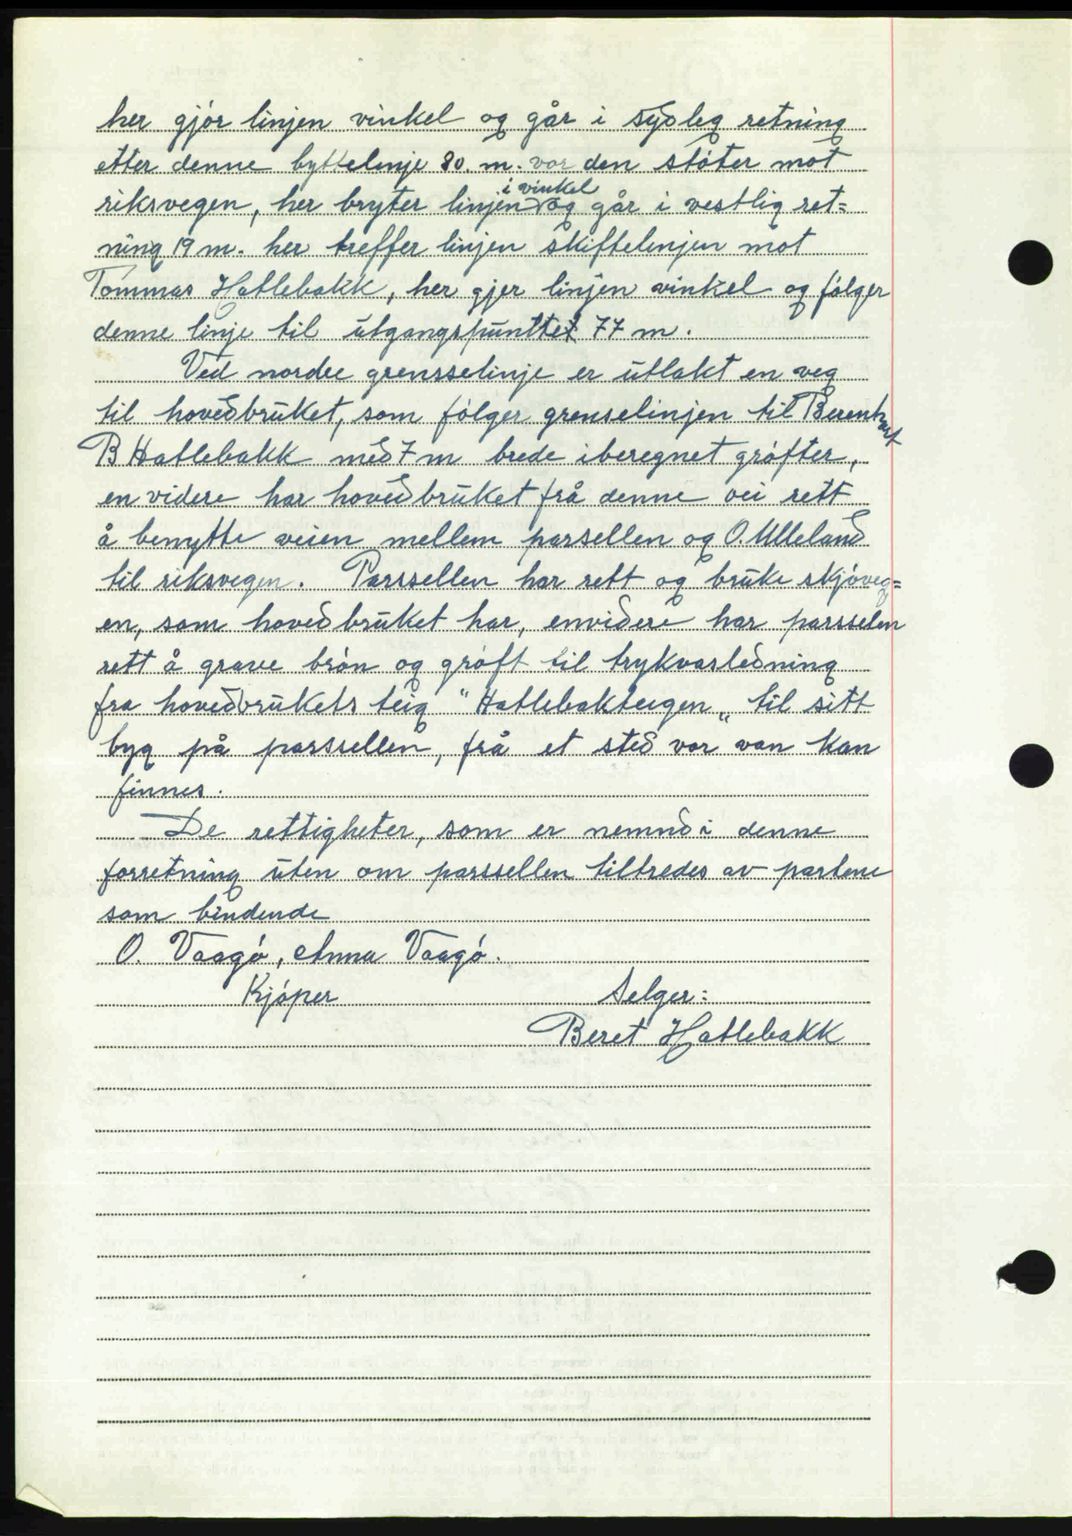 her gjør linjen vinkel og går i sydleg retning
etter denne byttelinje 80. m. vor den støter mot
riksvegen, her bryter linjen i vinkel og går i vestlig ret=
ning 19 m. her treffer linjen skiftelinjen mot
Tommas Hatlebakk, her gjer linjen vinkel og følger
denne linje til utgangspunttet 77 m.
Ved nordre grensselinje er utlakt en veg
til hovedbruket, som følger grenselinjen til Berenhart
B Hatlebakk med 7 m brede iberegnet grøfter,
en videre har hovedbruket frå denne vei rett
å benytte veien mellem parsellen og O. Ulleland
til riksvegen. Parssellen har rett og bruke skjøveg=
en, som hovedbruket har, envidere har parsselen
rett å grave brøn og grøft til trykvasledning
fra hovedbrukets teig "Hatlebakteigen" til sitt
byg på parssellen, frå et sted vor van kan
finnes.
De rettigheter, som er nemnd i denne
forretning uten om parssellen tiltredes av partene
som bindende
O. Vaagø, Anna Vaagø.
Kjøper Selger:
Beret Hatlebakk